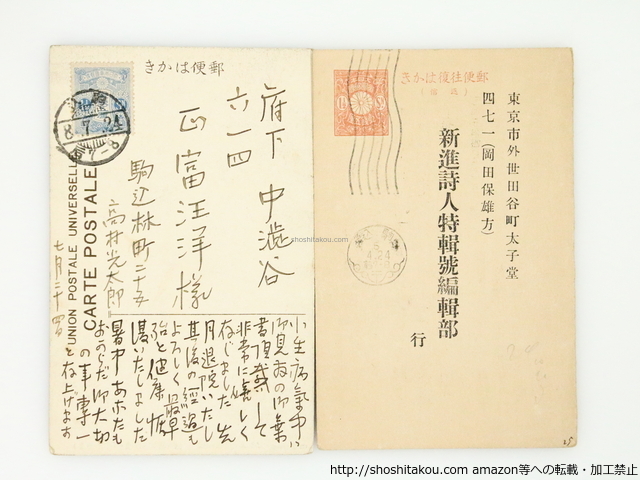 郵便はかき
府下 中澁谷
六一四
正富汪洋様
駒込林町二十五
高村光太郎
七月二十四日
UNION POSTALE UNIVERSELLE
CARTE POSTALE
8.7.24
小生病氣中は
御見舞の御葉
書頂戴して
非常に嬉しく
存じました 先
月退院いたし
其後の經過も
よろしく 最早
殆と健康に恢
復いたしました
暑中 あなたも
おからだ御大切
の事専一
と存上げます
郵便往復はかき
東京市外世田谷町太子堂
四七一(岡田保雄方)
新進詩人特輯號編輯部
行
shoshitakou.com
http://shoshitakou.com amazon等への転載・加工禁止